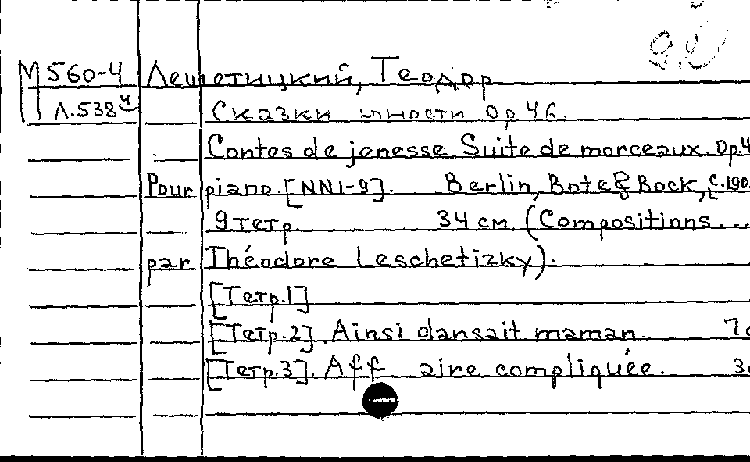 М560-4 Лешетицкий, Теодор
Л.538ч Сказки юности Op 46.
Contes de jenesse Suite de morceaux. Op.4
Pour piano. [NN1-9]. Berlin, Bote & Bock, c.190
9 тетр. 34 см. (Compositions...
par Théodore Leschetizky).
[Тетр.1]
[Тетр.2]. Ainsi dansait maman
[Тетр.3]. Aff aire compliquée.